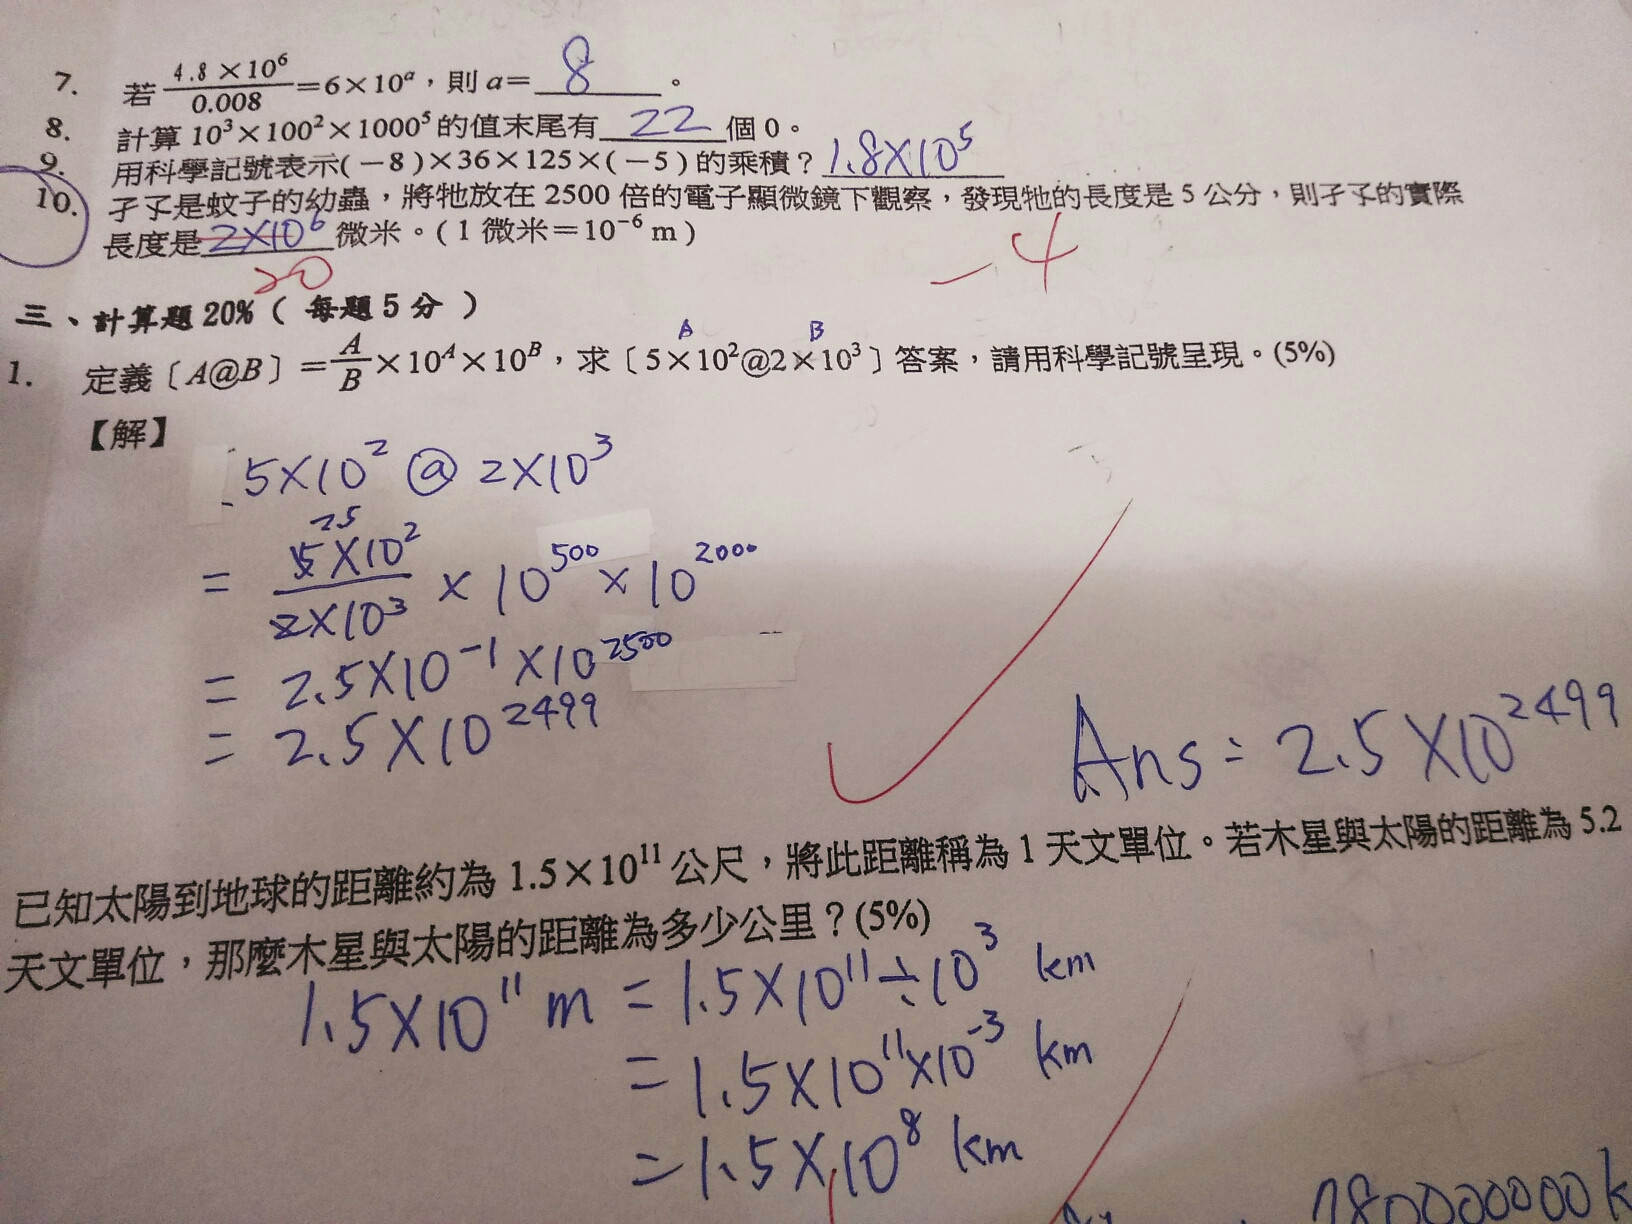 7. 若 4.8×10⁶/0.008=6×10ᵃ,則 a= 8 。
8. 計算 10³×100²×1000⁵ 的值末尾有 22 個 0。
9. 用科學記號表示(-8)×36×125×(-5)的乘積? 1.8×10⁵
10. 孑孓是蚊子的幼蟲,將牠放在 2500 倍的電子顯微鏡下觀察,發現牠的長度是 5 公分,則孑孓的實際
長度是 2×10⁶ 微米。(1 微米=10⁻⁶ m)
20
-4
三、計算題 20%( 每題 5 分 )
A B
1. 定義〔A@B〕=A/B×10ᴬ×10ᴮ,求〔5×10²@2×10³〕答案,請用科學記號呈現。(5%)
【解】
5×10² @ 2×10³
25
= 5×10²/2×10³ × 10⁵⁰⁰ × 10²⁰⁰⁰
= 2.5×10⁻¹×10²⁵⁰⁰
= 2.5×10²⁴⁹⁹
Ans: 2.5×10²⁴⁹⁹
已知太陽到地球的距離約為 1.5×10¹¹ 公尺,將此距離稱為 1 天文單位。若木星與太陽的距離為 5.2
天文單位,那麼木星與太陽的距離為多少公里?(5%)
1.5×10¹¹ m = 1.5×10¹¹÷10³ km
= 1.5×10¹¹×10⁻³ km
= 1.5×10⁸ km